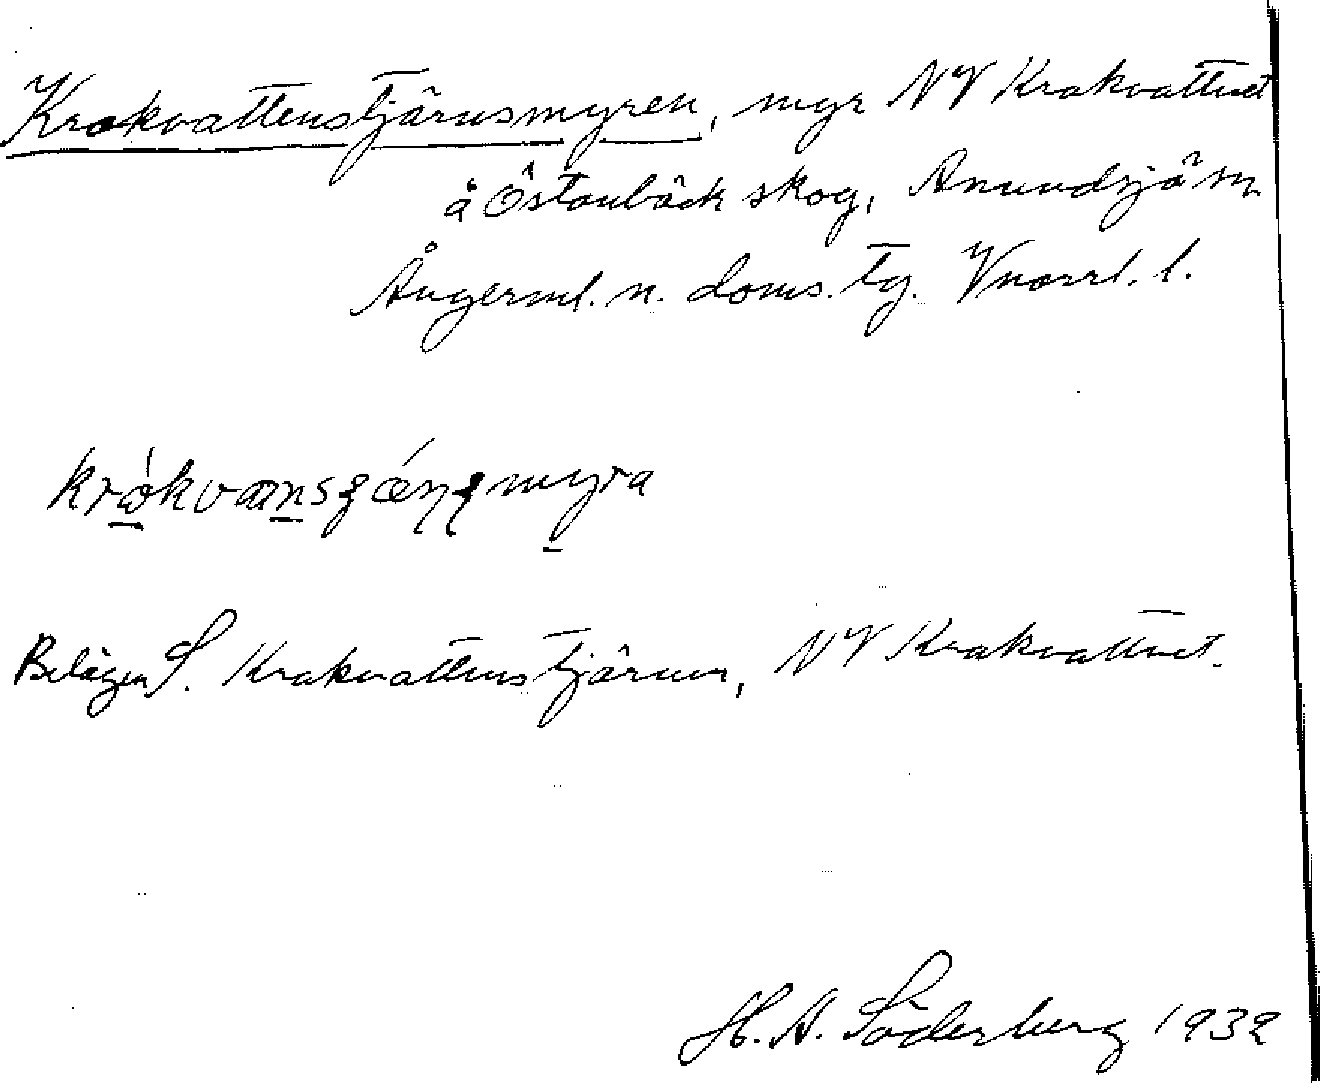 Krokvattenstjärnsmyren, myr NV Krokvattnet
å Östanbäck skog, Anundsjö sn
Ångerml. n. doms. tg. Vnorrl. l.
Belägen S. Krokvattenstjärnen, NV Krokvattnet.
H. A. Söderberg 1932